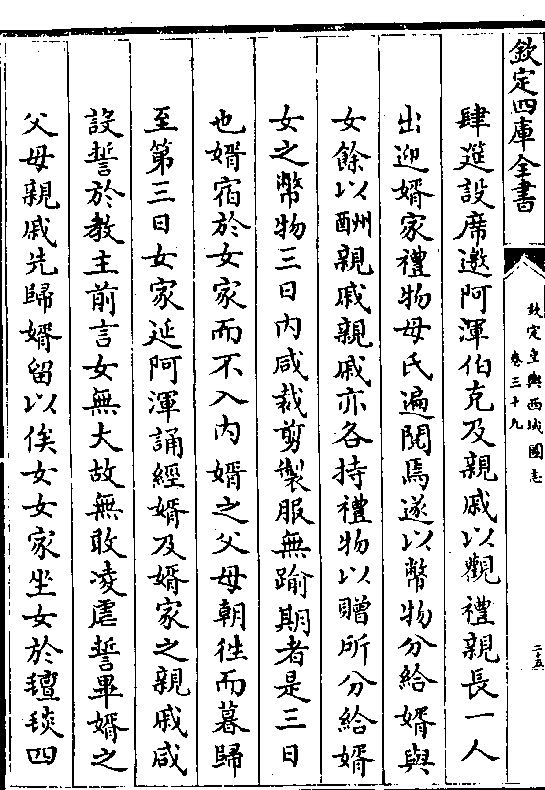 欽定四庫全書
欽定皇輿西域圖志
卷三十九
二十五
肆筵設席邀阿渾伯克及親戚以觀禮親長一人
出迎婿家禮物母氏遍閱焉遂以幣物分給婿與
女餘以酬親戚親戚亦各持禮物以贈所分給婿
女之幣物三日内咸裁剪製服無踰期者是三日
也婿宿於女家而不入内婿之父母朝徃而暮歸
至第三日女家延阿渾誦經婿及婿家之親戚咸
設誓於教主前言女無大故無敢凌虐誓畢婿之
父母親戚先歸婿留以俟女女家坐女於氊毯四